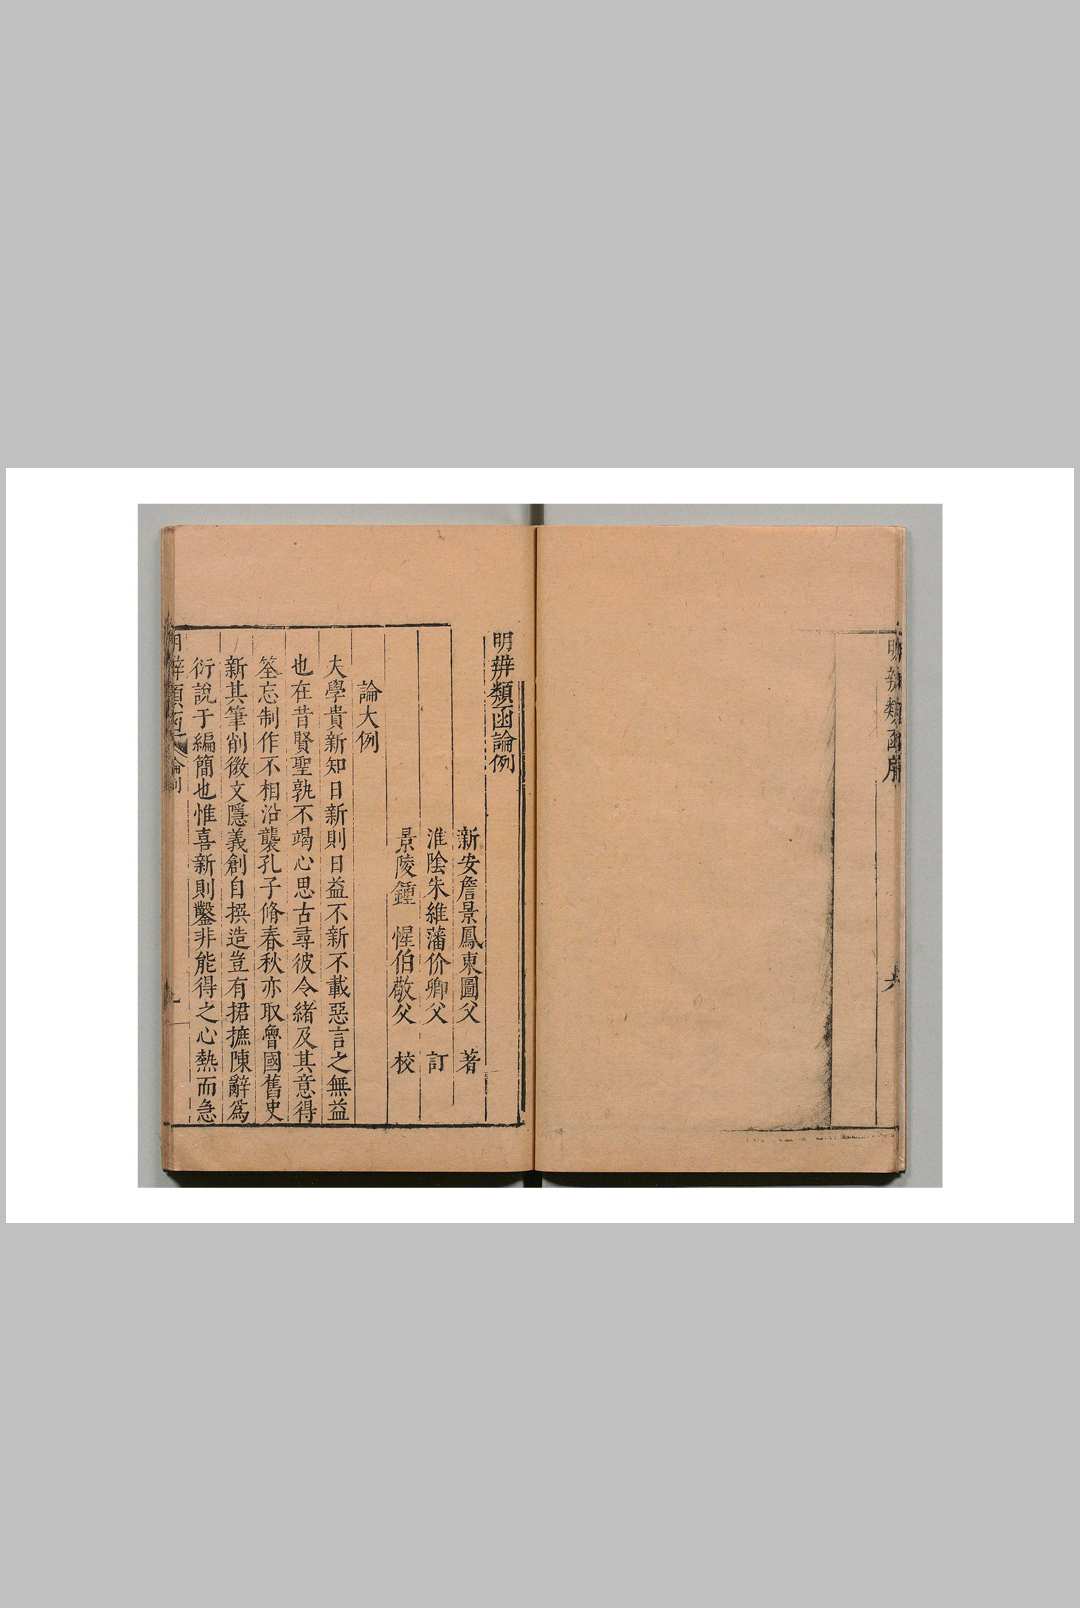 明辨類函序
六
明辨類函論例
新安詹景鳳東圖父　著
淮陰朱維藩价卿父　訂
景陵鍾　惺伯敬父　校
論大例
大學貴新知日新則日益不新不載惡言之無益
也在昔賢聖孰不竭心思古尋彼令緒及其意得
筌忘制作不相沿襲孔子脩春秋亦取魯國舊史
新其筆削微文隱義創自撰造豈有捃摭陳辭爲
衍說于編簡也惟喜新則鑿非能得之心熱而急
明辨類函
論例